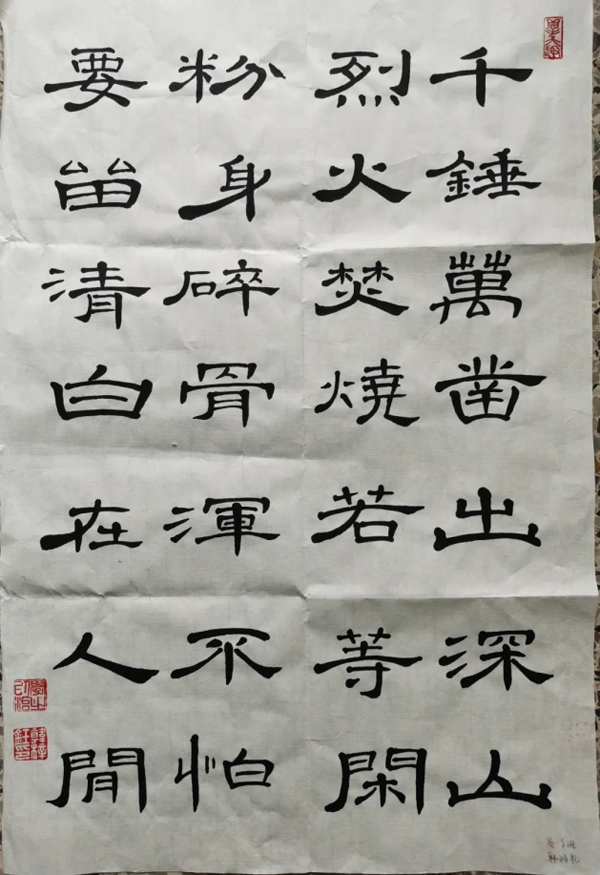 千錘萬凿出深山
烈火焚燒若等閑
粉身碎骨渾不怕
要畱清白在人間